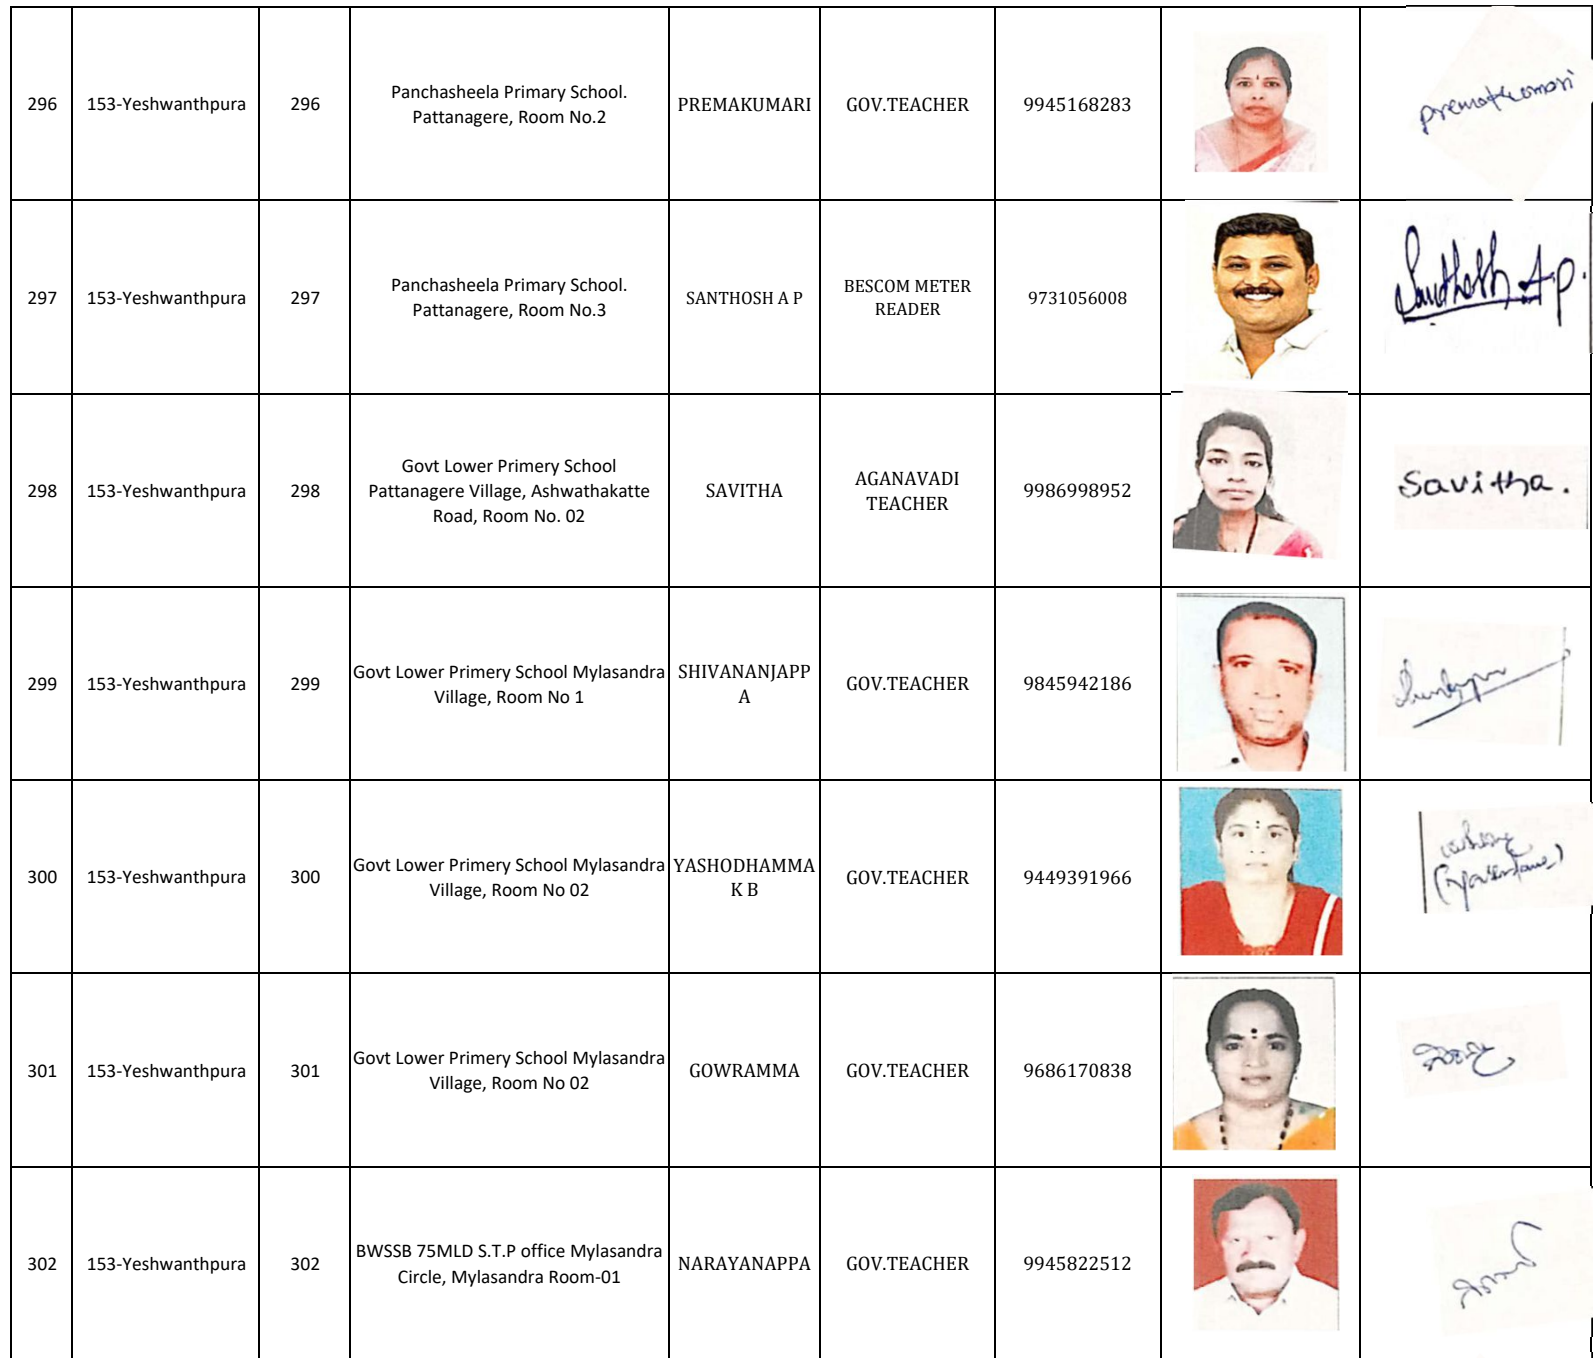 296
153-Yeshwanthpura
296
Panchasheela Primary School.
Pattanagere, Room No.2
PREMAKUMARI
GOV.TEACHER
9945168283
premakumari
297
153-Yeshwanthpura
297
Panchasheela Primary School.
Pattanagere, Room No.3
SANTHOSH A P
BESCOM METER
READER
9731056008
Santhosh A.P.
298
153-Yeshwanthpura
298
Govt Lower Primery School
Pattanagere Village, Ashwathakatte
Road, Room No. 02
SAVITHA
AGANAVADI
TEACHER
9986998952
Savitha.
299
153-Yeshwanthpura
299
Govt Lower Primery School Mylasandra
Village, Room No 1
SHIVANANJAPP
A
GOV.TEACHER
9845942186
300
153-Yeshwanthpura
300
Govt Lower Primery School Mylasandra
Village, Room No 02
YASHODHAMMA
K B
GOV.TEACHER
9449391966
301
153-Yeshwanthpura
301
Govt Lower Primery School Mylasandra
Village, Room No 02
GOWRAMMA
GOV.TEACHER
9686170838
302
153-Yeshwanthpura
302
BWSSB 75MLD S.T.P office Mylasandra
Circle, Mylasandra Room-01
NARAYANAPPA
GOV.TEACHER
9945822512